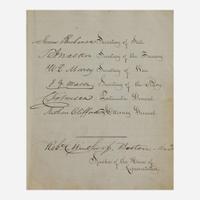 James Buchanan Secretary of State
R J Walker Secretary of the Treasury
W L Marcy Secretary of War
J Y Mason Secretary of the Navy
C Johnson Postmaster General
Nathan Clifford Attorney General
Robt C Winthrop, Boston, Mass
Speaker of the House of
Representatives